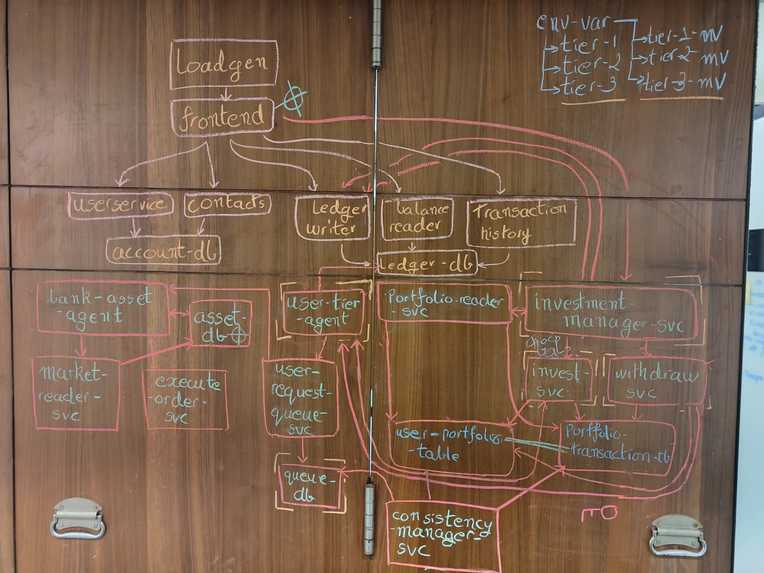 env-var
tier-1
tier-2
tier-3
tier-1-mv
tier-2-mv
tier-3-mv
Loadgen
frontend
userservice
contacts
Ledger
writer
balance
reader
Transaction
history
account-db
Ledger-db
bank-asset
-agent
asset
-db
user-tier
-agent
Portfolio-reader
-svc
investment-
manager-svc
market-
reader-svc
execute
-order-
svc
user-
request-
queue-
svc
invest
svc
withdraw
svc
user-portfolio
-table
Portfolio-
transaction-db
queue-
db
consistency
-manager-
svc